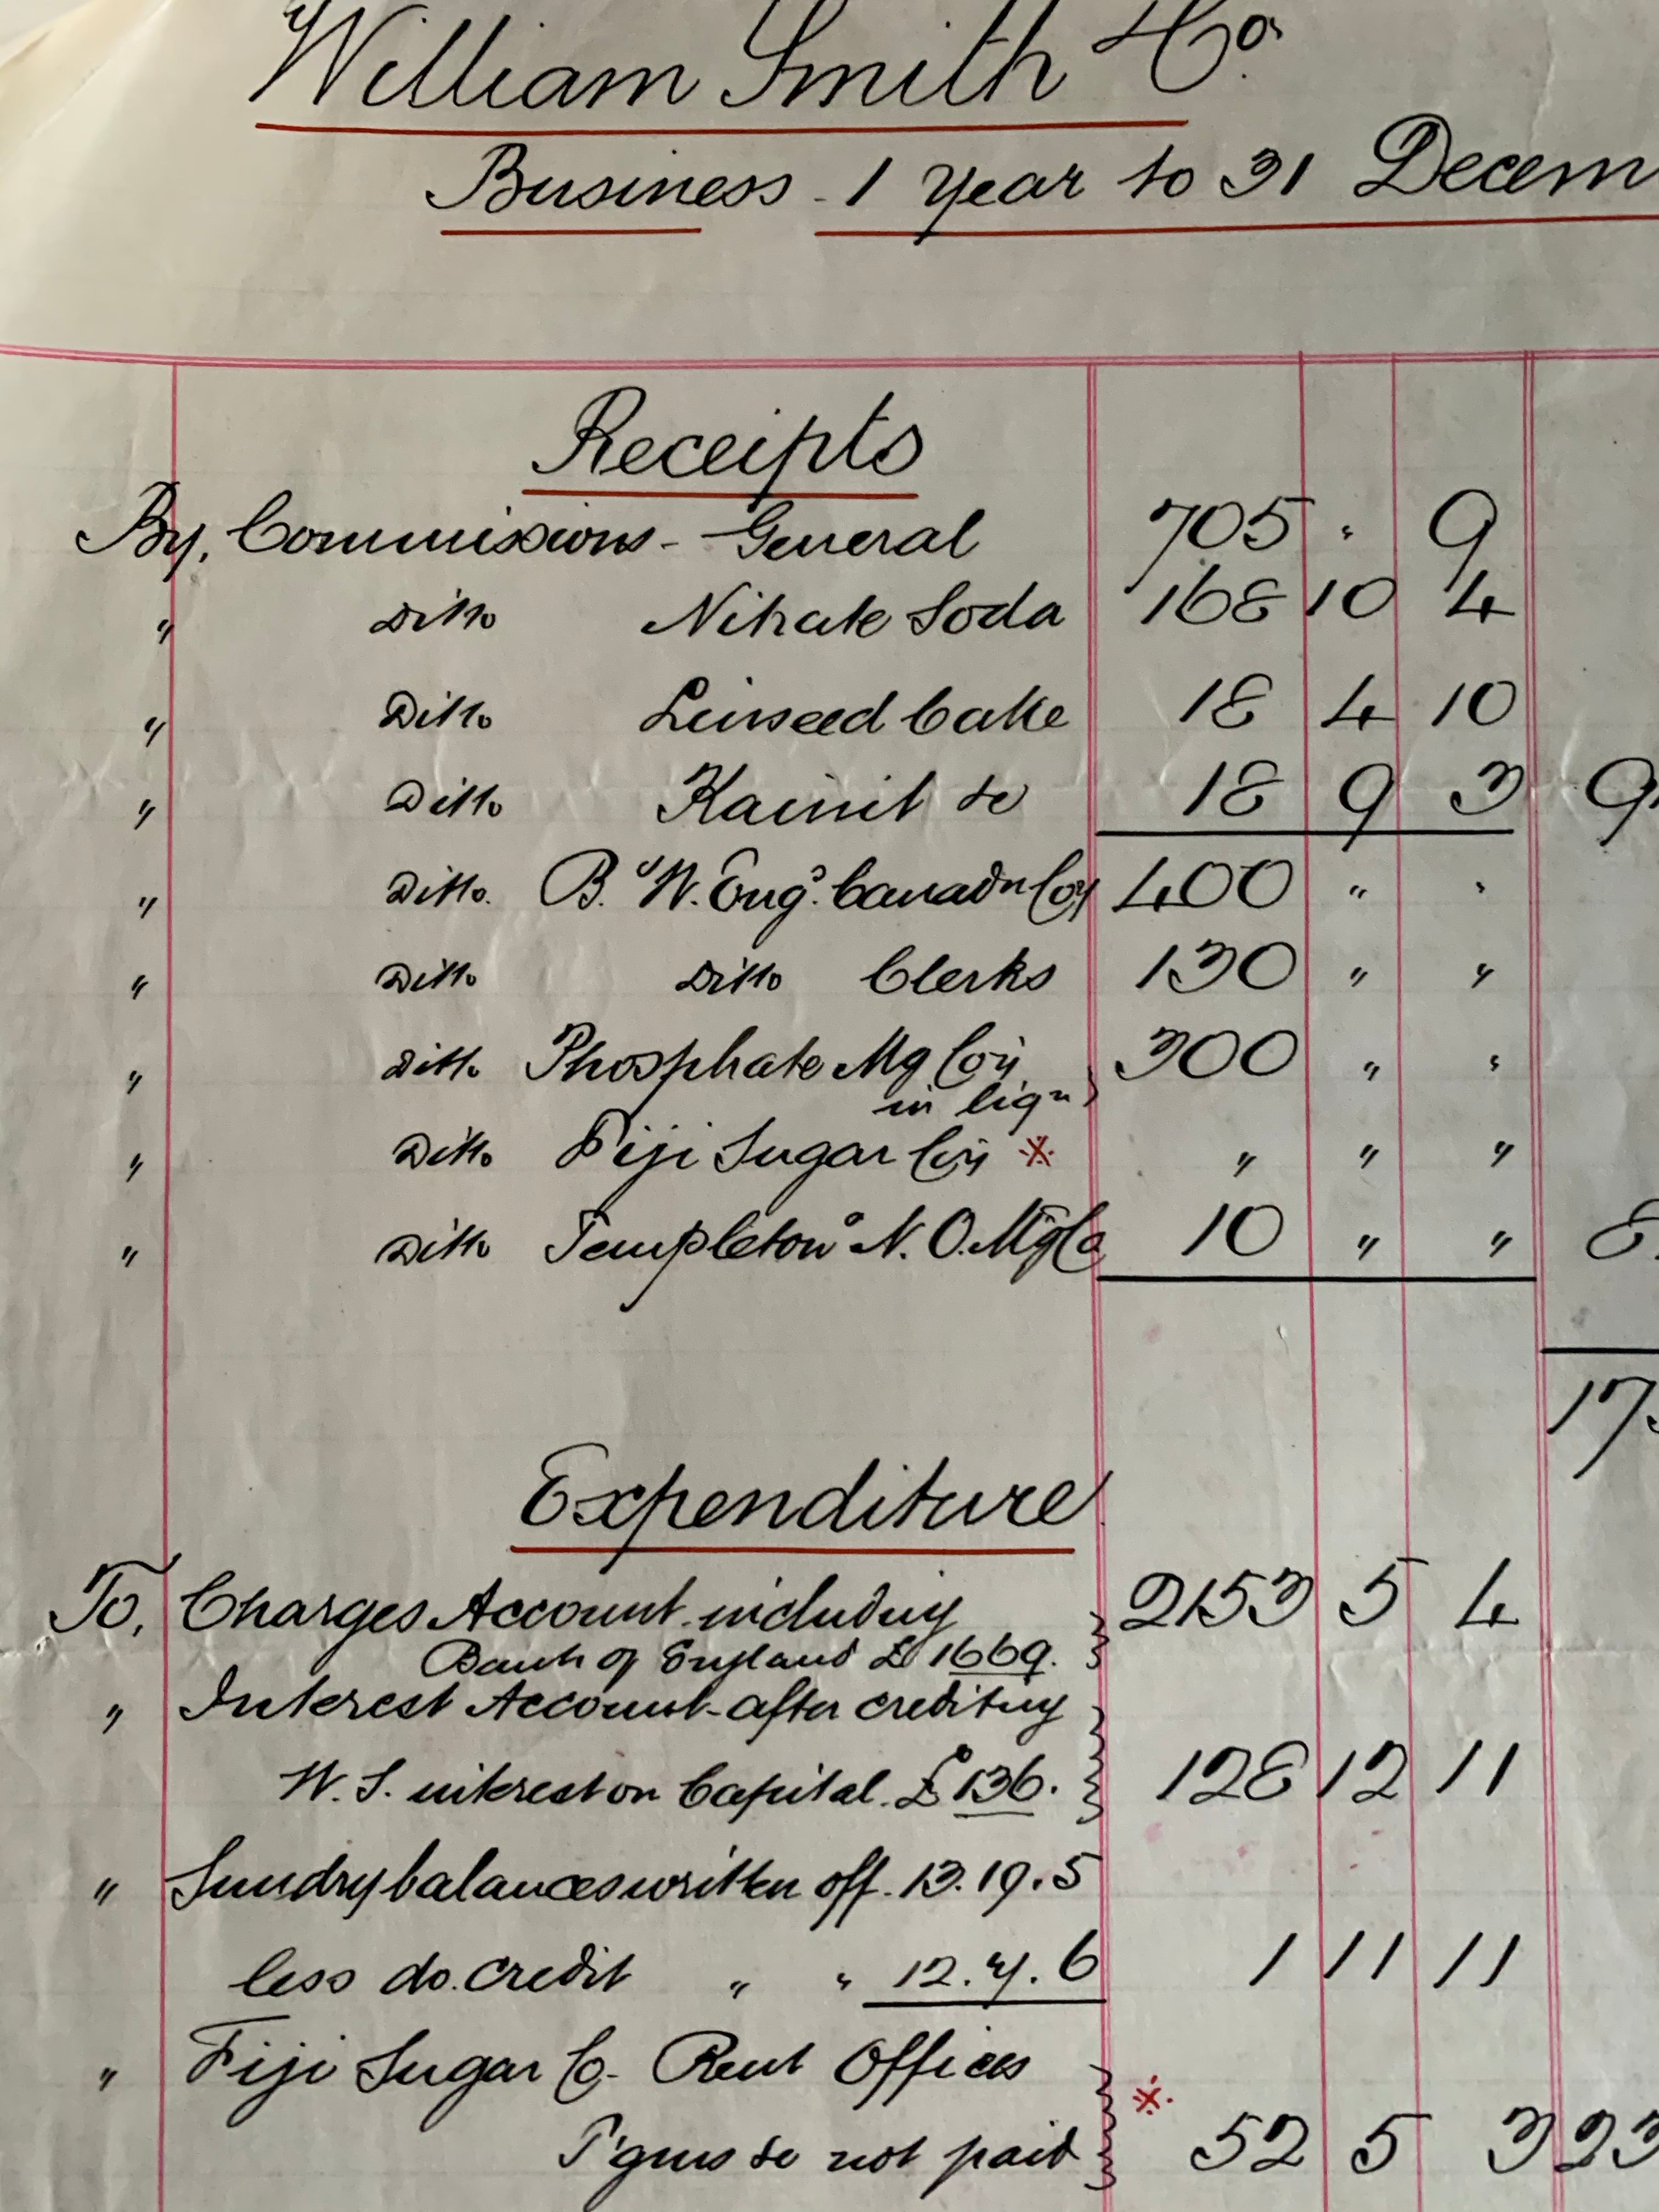 William Smith & Co.
Business - 1 Year to 31 Decem
Receipts
By, Commissions - General 705 " 9
" Ditto Nitrate Soda 168 10 4
" Ditto Linseed Cake 18 4 10
" Ditto Kainit &c 18 9 3 9
" Ditto. B. & N. Eng. Canadn Coy 400 " "
" Ditto Ditto Clerks 130 " "
" Ditto Phosphate Mg Coy 300 " "
in liqn
" Ditto Fiji Sugar Coy * " " "
" Ditto Templeton N. O. Mg Co 10 " " 8
17
Expenditure
To, Charges Account including 2153 5 4
Bank of England £1669.
" Interest Account - after crediting
W. S. interest on Capital. £136. 128 12 11
" Sundry balances written off. 13. 19. 5
less do. credit " " 12. 7. 6 1 11 11
" Fiji Sugar Co - Rent Offices
&c not paid * 52 5 3 23